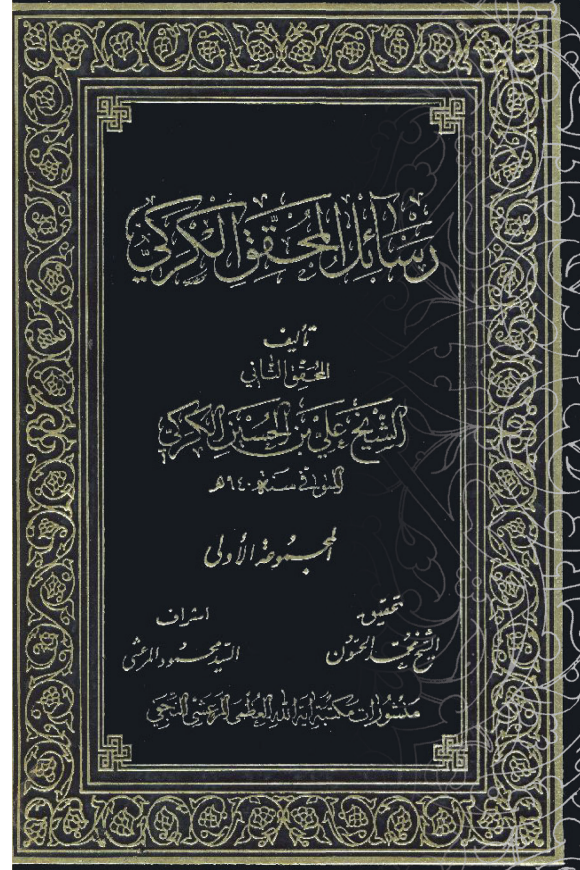 رسائل المحقق الكركي
تأليف
المحقق الثاني
الشيخ علي بن الحسين الكركي
المتوفى سنة ٩٤٠ هـ
المجموعة الأولى
تحقيق
الشيخ محمد الحسون
اشراف
السيد محمود المرعشي
منشورات مكتبة آية الله العظمى المرعشي النجفي